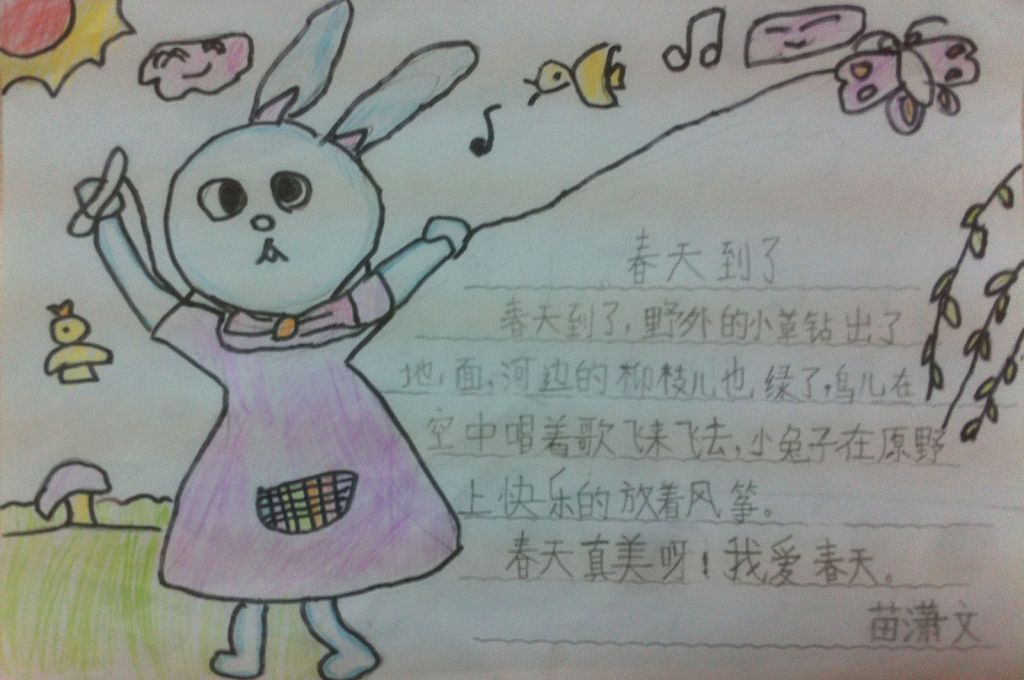 春天到了
春天到了,野外的小草钻出了
地面,河边的柳枝儿也绿了,鸟儿在
空中唱着歌飞来飞去,小兔子在原野
上快乐的放着风筝。
春天真美呀!我爱春天。
苗潇文